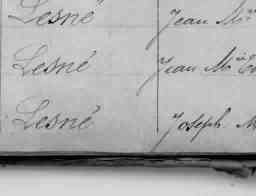 Lesné Jean M
Lesné Jean M
Lesné Joseph M